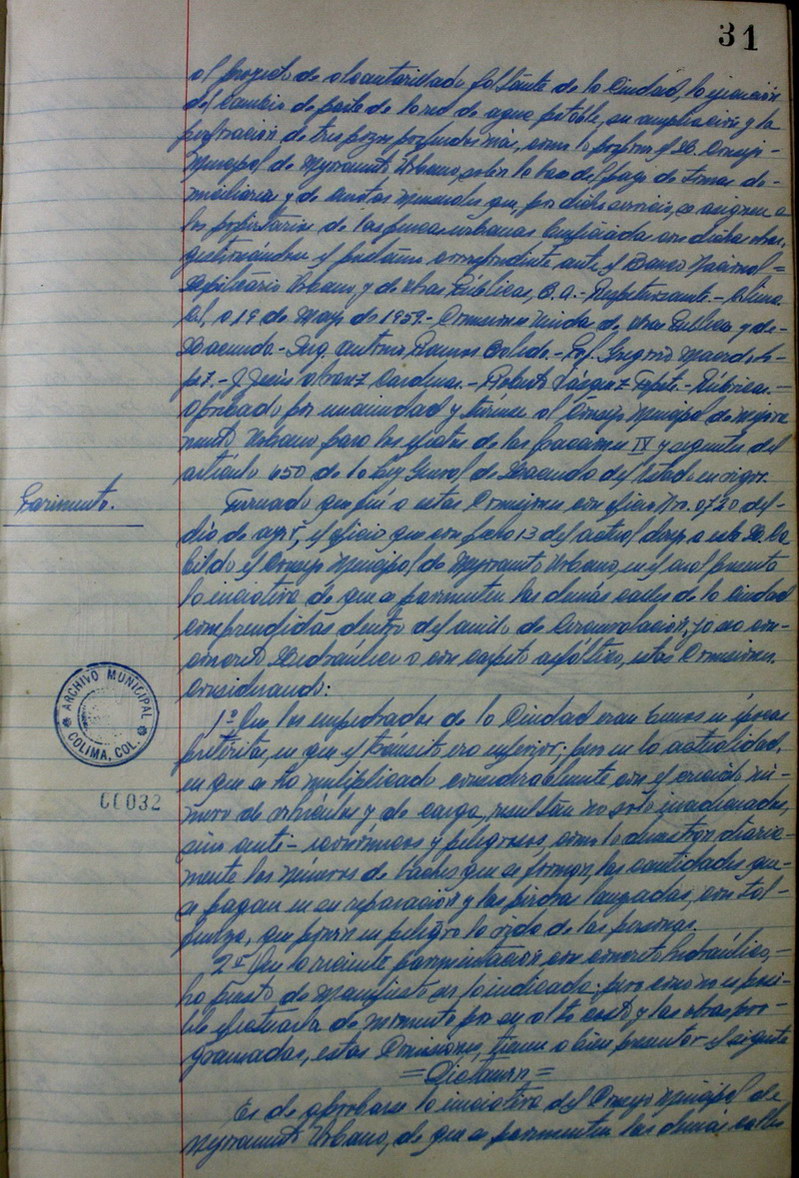 31
al proyecto de alcantarillado faltante de la Ciudad, la ejecución
del cambio de parte de la red de agua potable, su ampliación y la
perforación de tres pozos profundos más, como lo propone el H. Consejo
Municipal de Mejoramiento Urbano, sobre la base del pago de tomas do-
miciliarias y de cuotas mensuales que, por dicho servicio, se asignen a
los propietarios de las fincas urbanas beneficiadas con dichas obras,
gestionándose el préstamo correspondiente ante el Banco Nacional =
Hipotecario Urbano y de Obras Públicas, S.A.- Respetuosamente.- Colima
Col., a 19 de Mayo de 1959.- Comisiones Unidas de Obras Públicas y de-
Hacienda.- Ing. Antonio Ramos Salido.- Prof. Gregorio Macedo Ló-
pez.- J. Jesús Cárdenas.- Roberto Vázquez Tapia.- Rúbricas.-
Aprobado por unanimidad y túrnese al Consejo Municipal de Mejora
miento Urbano para los efectos de las fracciones IV y siguientes del
artículo 650 de la Ley General de Hacienda del Estado en vigor.
Pavimento.
Turnado que fué a estas Comisiones con oficio No. 0720 del-
día de ayer, el oficio que con fecha 13 del actual dirige a este H. Ca
bildo el Consejo Municipal de Mejoramiento Urbano, en el cual presenta
la iniciativa de que se pavimenten las demás calles de la Ciudad
comprendidas dentro del anillo de Circunvalación, ya sea con-
concreto Hidráulico o con carpeta asfáltica, estas Comisiones.
Considerando:
1º Que los empedrados de la Ciudad eran buenos en épocas
pretéritas, en que el tránsito era inferior; pero en la actualidad,
en que se ha multiplicado considerablemente con el crecido nú-
mero de vehículos y de carga, resultan no solo inadecuados,
sino anti-económicos y peligrosos, como lo demuestran diaria-
mente los números de baches que se forman, las cantidades que-
se pagan en su reparación y las piedras lanzadas, con tal-
fuerza, que ponen en peligro la vida de las personas.
2º Que la reciente pavimentación con concreto hidráulico, =
ha puesto de manifiesto ser la indicada; pero como no es posi-
ble efectuarla de momento por su alto costo y las obras pro-
gramadas, estas Comisiones, tienen a bien presentar el siguiente
= Dictamen =
Es de aprobarse la iniciativa del Consejo Municipal de
Mejoramiento Urbano, de que se pavimenten las demás calles
ARCHIVO MUNICIPAL
COLIMA, COL.
00032